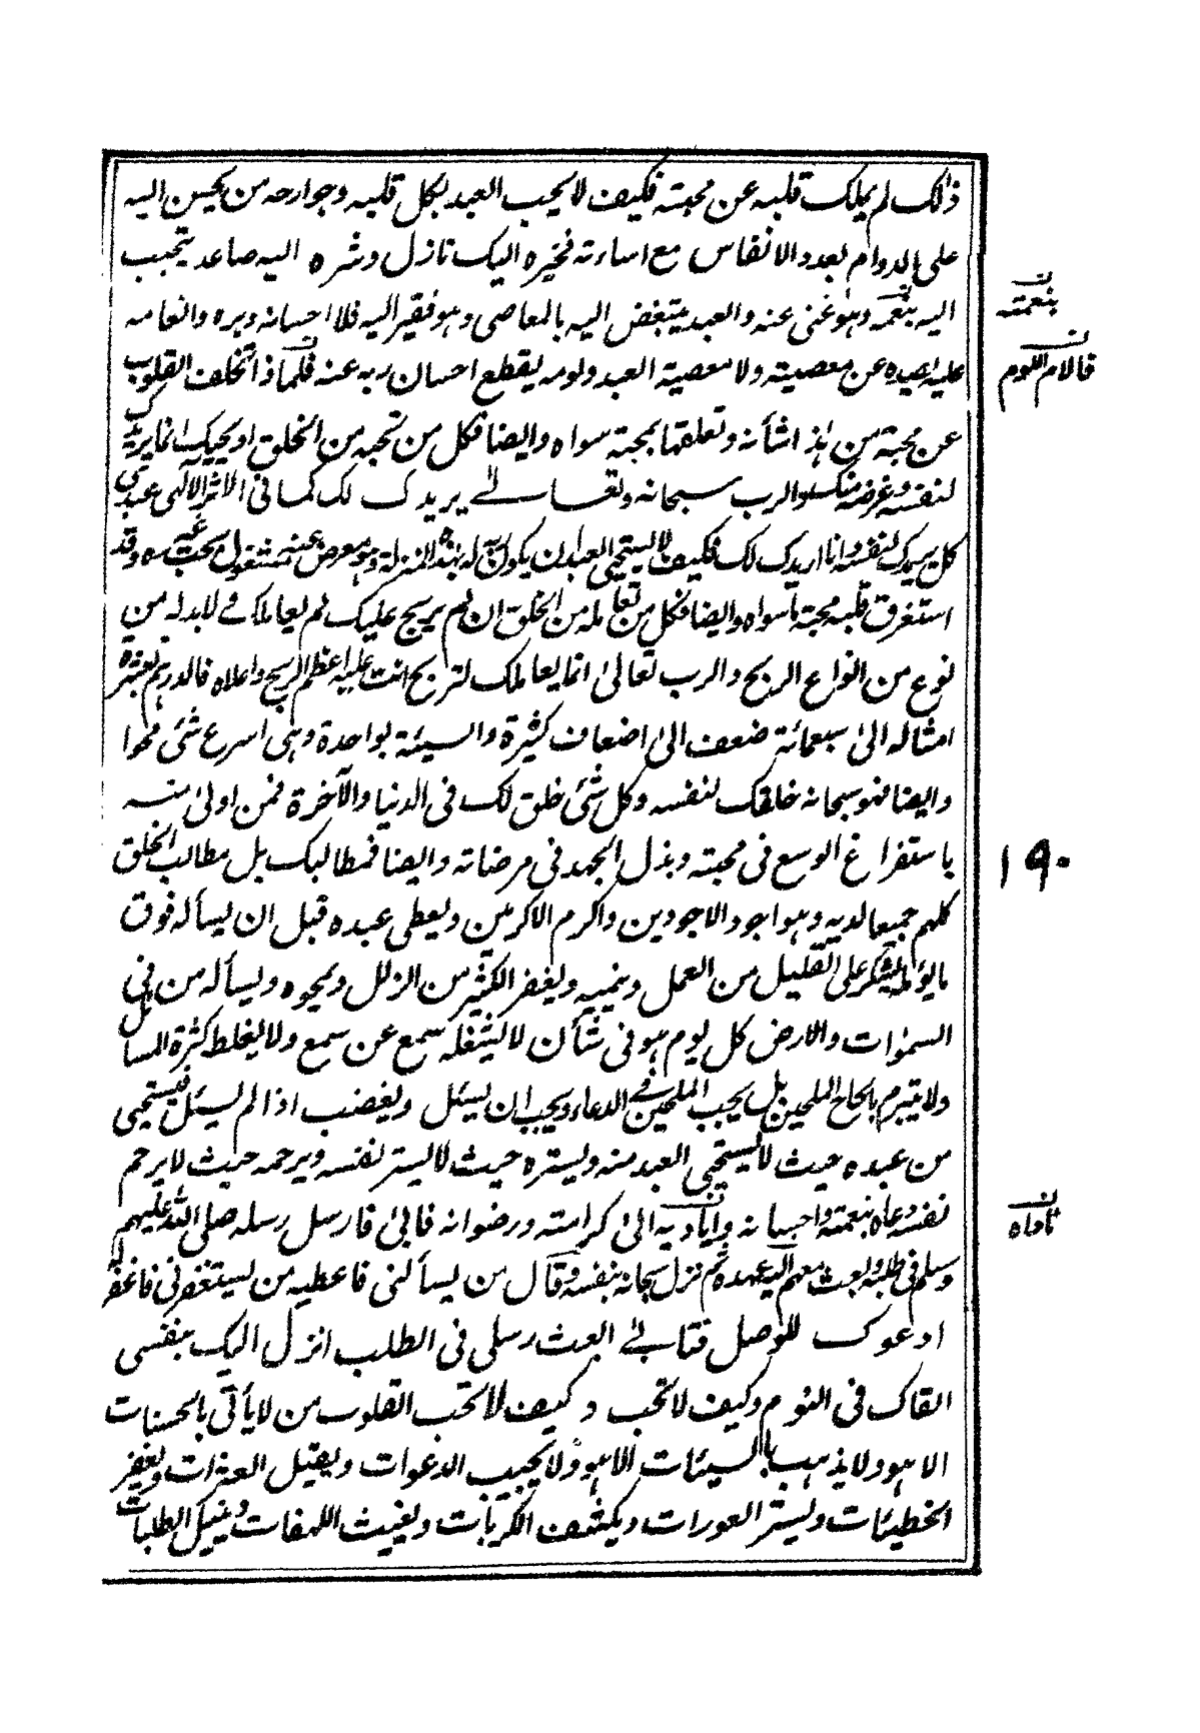 ذلك لم يملك قلبه عن محبته فكيف لا يحب العبد بكل قلبه وجوارحه من يحسن اليه
على الدوام بعدد الانفاس مع اساءته فخيره اليك نازل وشره اليه صاعد يتحبب
اليه بنعمه وهو غنى عنه والعبد يتبغض اليه بالمعاصى وهو فقير اليه فلا احسانه وبره وانعامه
بنعمته
عليه يصده عن معصيته ولا معصية العبد ولومه يقطع احسان ربه عنه فلماذا تخلف القلوب
فالام اللوم
عن محبة من هذا شأنه وتعلقها بمحبة سواه وايضا فكل من تحبه من الخلق او يحبك انما يريدك
لنفسه وغرضه منك والرب سبحانه وتعالى يريدك لك كما فى الاثر الالهى عبدى
كل يريدك لنفسه وانا اريدك لك فكيف لا يستحيى العبد ان يكون ربه له بهذه المنزلة وهو معرض عنه مشغول بحب غيره وقد
استغرق قلبه محبة ما سواه وايضا فكل من تعامله من الخلق ان لم يربح عليك لم يعاملك فى لابد له من
نوع من انواع الربح والرب تعالى انما يعاملك لتربح انت عليه اعظم الربح واعلاه فالدرهم بعشرة
امثاله الى سبعمائة ضعف الى اضعاف كثيرة والسيئة بواحدة وهى اسرع شئ محوا
وايضا فهو سبحانه خلقك لنفسه وكل شئ خلق لك فى الدنيا والآخرة فمن اولى منه
باستفراغ الوسع فى محبته وبذل الجهد فى مرضاته وايضا فمطالبك بل مطالب الخلق
١٩٠
كلهم جميعا لديه وهو اجود الاجودين واكرم الاكرمين ويعطى عبده قبل ان يسأله فوق
ما يؤمله يشكر على القليل من العمل وينميه ويغفر الكثير من الزلل ويمحوه ويسأله من فى
السموات والارض كل يوم هو فى شأن لا يشغله سمع عن سمع ولا يغلطه كثرة المسائل
ولا يتبرم بالحاح الملحين بل يحب الملحين فى الدعاء ويحب ان يسئل ويغضب اذا لم يسئل فيستحيى
من عبده حيث لا يستحيى العبد منه ويستره حيث لا يستر نفسه ويرحمه حيث لا يرحم
نفسه دعاه بنعمته واحسانه واياديه الى كرامته ورضوانه فابى فارسل رسله صلى الله عليهم
ناداه
وسلم فى طلبه وبعث معهم اليه عهده ثم نزل سبحانه بنفسه وقال من يسألنى فاعطيه من يستغفرنى فاغفر له
ادعوك للوصل فتابى ابعث رسلى فى الطلب انزل اليك بنفسى
القاك فى النوم وكيف لا تحب وكيف لا تحب القلوب من لا يأتى بالحسنات
الا هو ولا يذهب بالسيئات الا هو ولا يجيب الدعوات ويقيل العثرات ويغفر
الخطيئات ويستر العورات ويكشف الكربات ويغيث اللهفات وينيل الطلبات